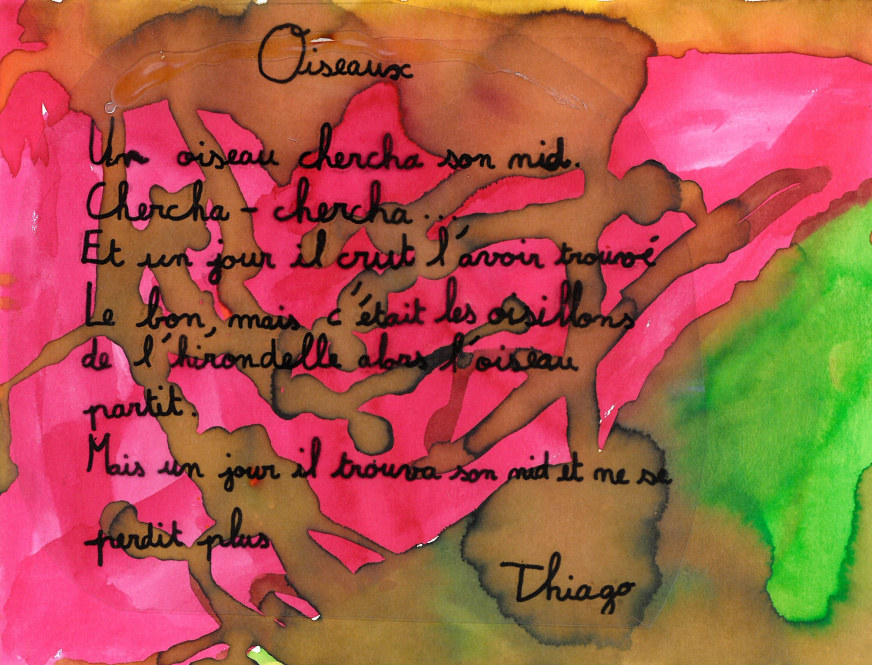 Oiseaux
Un oiseau chercha son nid.
Chercha - chercha...
Et un jour il crut l'avoir trouvé
Le bon, mais c'était les oisillons
de l'hirondelle alors l'oiseau
partit.
Mais un jour il trouva son nid et ne se
perdit plus
Thiago